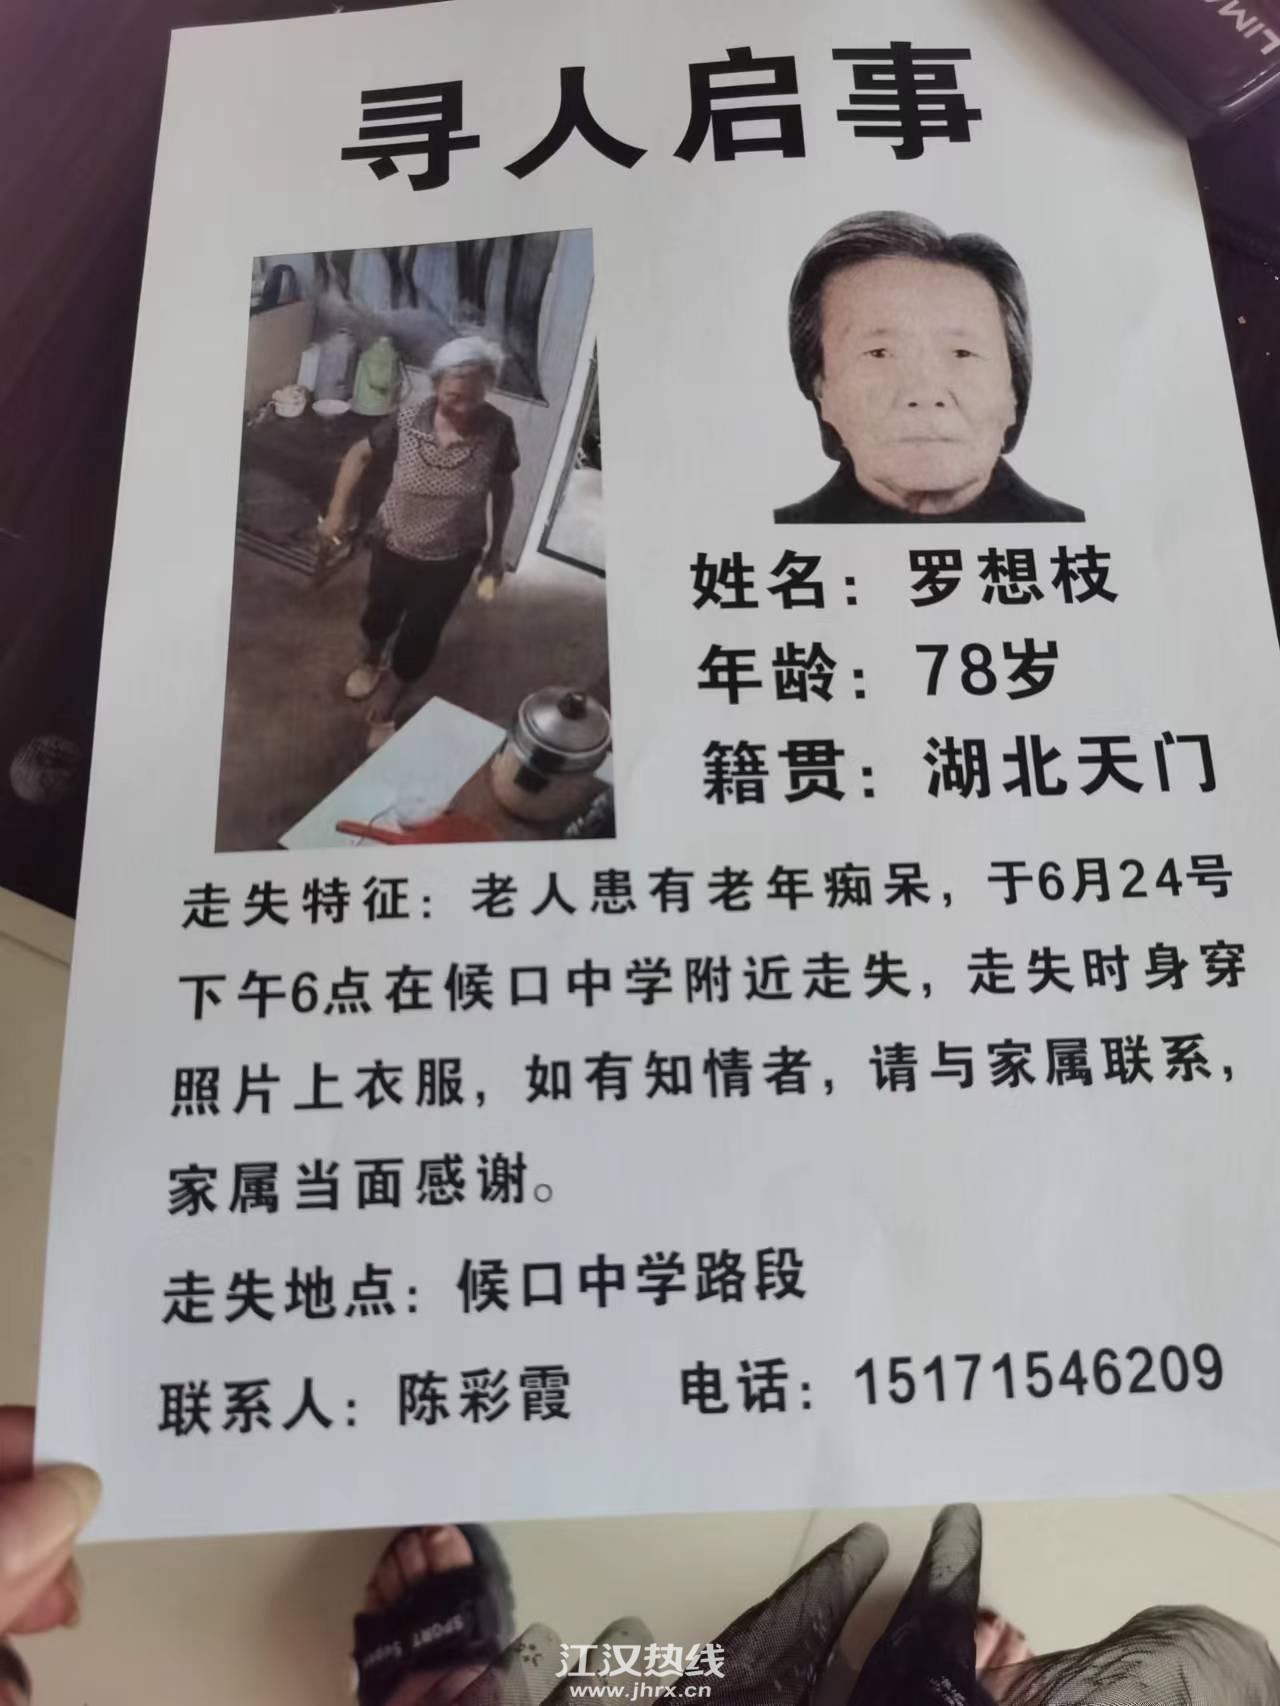 寻人启事
姓名：罗想枝
年龄：78岁
籍贯：湖北天门
走失特征：老人患有老年痴呆，于6月24号
下午6点在候口中学附近走失，走失时身穿
照片上衣服，如有知情者，请与家属联系，
家属当面感谢。
走失地点：候口中学路段
联系人：陈彩霞 电话：15171546209
SPORT
江汉热线
www.jhrx.cn